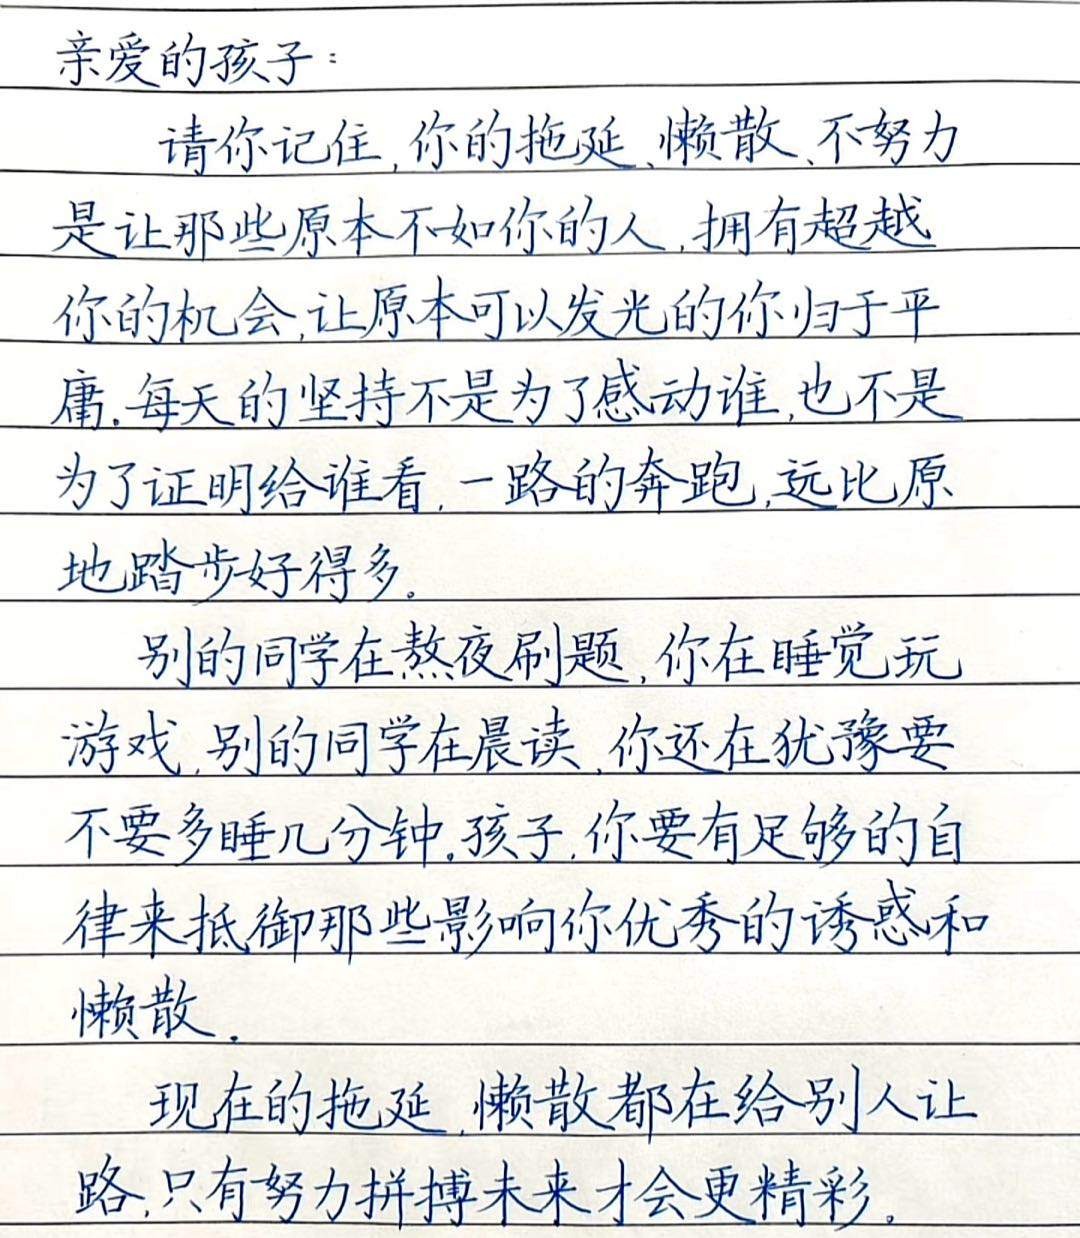 亲爱的孩子：
请你记住,你的拖延、懒散、不努力
是让那些原本不如你的人,拥有超越
你的机会,让原本可以发光的你归于平
庸.每天的坚持不是为了感动谁,也不是
为了证明给谁看,一路的奔跑,远比原
地踏步好得多。
别的同学在熬夜刷题,你在睡觉玩
游戏,别的同学在晨读,你还在犹豫要
不要多睡几分钟。孩子,你要有足够的自
律来抵御那些影响你优秀的诱惑和
懒散.
现在的拖延,懒散都在给别人让
路,只有努力拼搏未来才会更精彩。